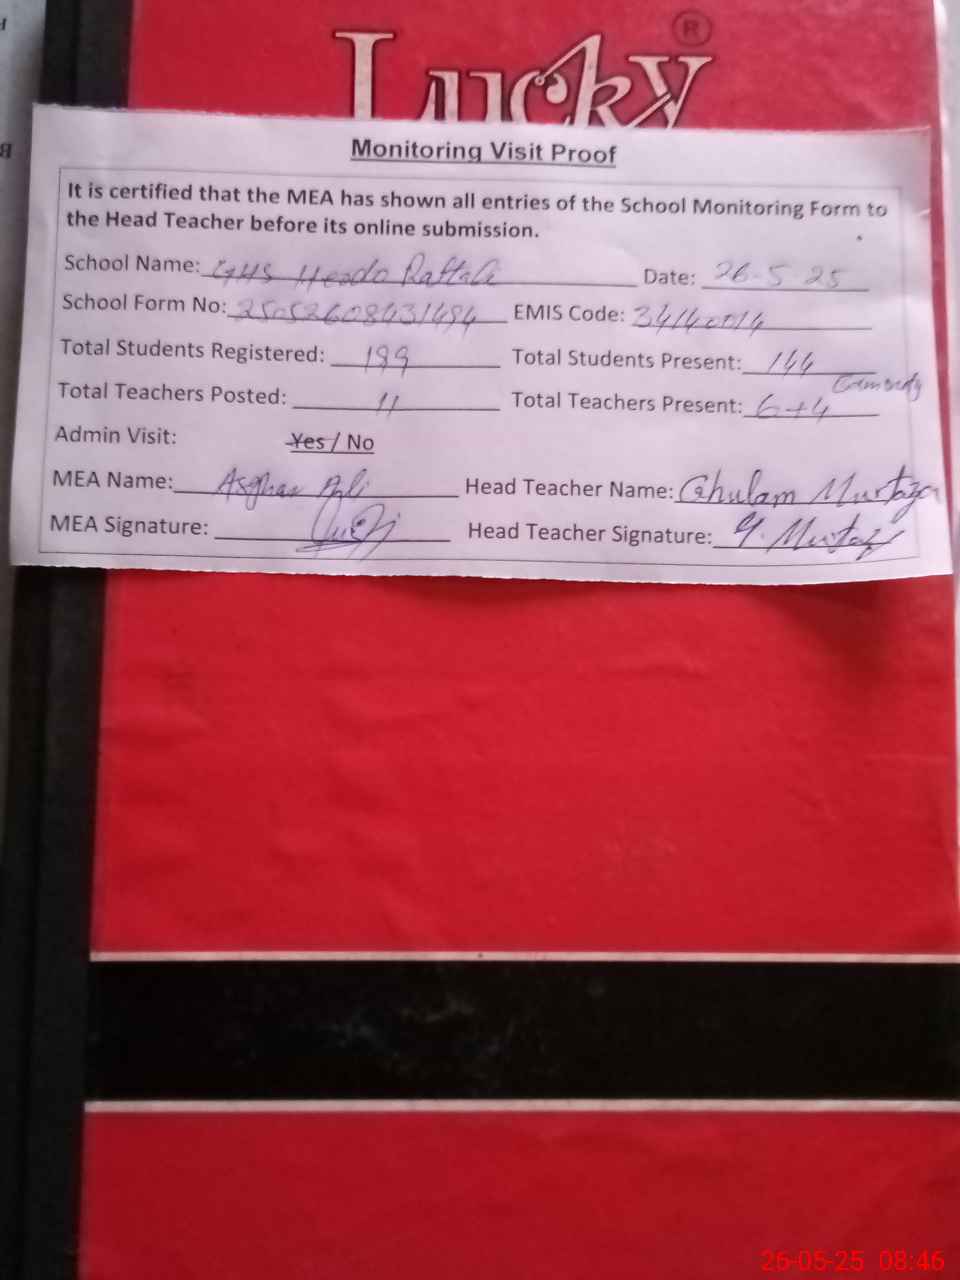 Lucky ®
Monitoring Visit Proof
It is certified that the MEA has shown all entries of the School Monitoring Form to
the Head Teacher before its online submission.
School Name: GHS Heado Raftali Date: 26-5 25
School Form No: 25052608431494 EMIS Code: 34140014
Total Students Registered: 199 Total Students Present: 144
Total Teachers Posted: 11 Total Teachers Present: 6+4
Admin Visit: Yes / No
MEA Name: Asghar Ali Head Teacher Name: Ghulam Murtaza
MEA Signature: Head Teacher Signature: G. Murtaza
26-05-25 08:46